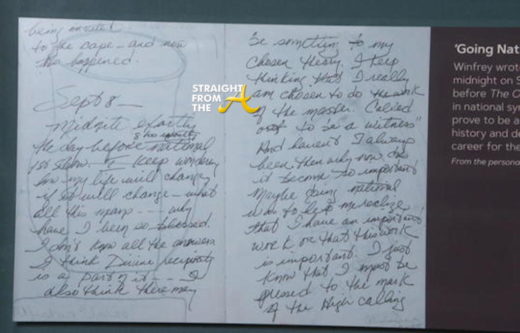 being invited
to the dape - and now
this happened.
Sept 8 -
Midnite exactly
8 hrs until
the day before national
1st show. I keep wondering
how my life will change
if it will change - what
all this means - - why
have I been so blessed.
I don't know all the answers
I think Divine reciprocity
is a part of it - - - I
also think there may
be something to my
chosen theory. I keep
thinking that I really
am chosen to do the work
of the master. Called
out to be a "witness"
And haven't I always
been then why now does
it become so important
Maybe going national
is to help me realize
that I have an important
work or that this work
is important. I just
know that I must be
pressed to the mark
of the High calling
STRAIGHT
FROM
THE A
'Going Nat
Winfrey wrot
midnight on S
before The O
in national sy
prove to be a
history and d
career for the
From the persona